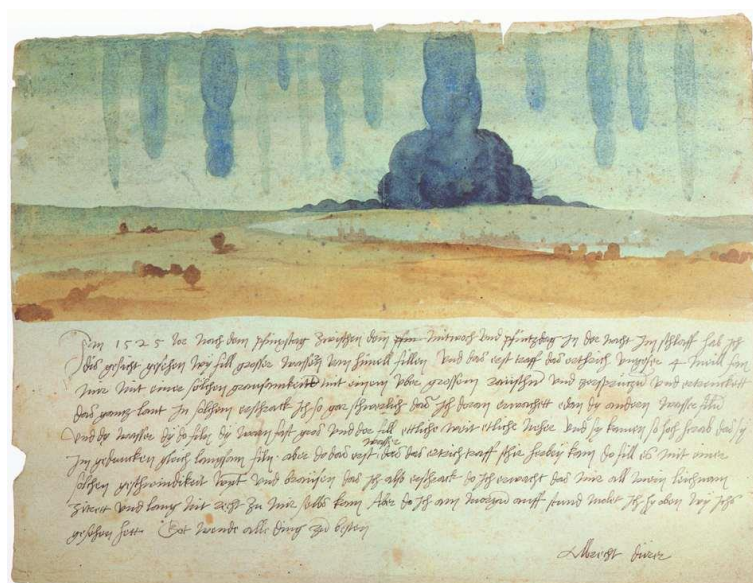 Im 1525 Jor nach dem pfinxstag zwischen dem mitwoch und pfintzdag in der nacht im schlaff hab ich
dis gesicht gesehen wy fill grosser wassern vom himell fillen Und das erst traff das erthrich ungefer 4 meill fan
mir mit einer solchen grausamkeitt mit einem uber grossem raüschn und zersprützn und ertrenckett
das gantz lant In solchem erschrack ich so gar schwerlich das ich doran erwachett edan dy andern wasser filn
Und dy wasser dy do filn dy warn fast gros und der fill ettliche weit ettliche neher und sy kamen so hoch herab das sy
im gedancken gleich langsam filn. aber do das erst wasser das das ertrich traff schir herbey kam do fill es mit einer
solchen geschwindikeit wynt und braüsen das ich also erschrack do ich erwacht das mir all mein leichnam
zitrett und lang nit recht zu mir selbs kam Aber do ich am morgn auff stund molet ich hy oben wy ichs
gesehen hett. Got wende alle ding zu besten
Albrecht dürer